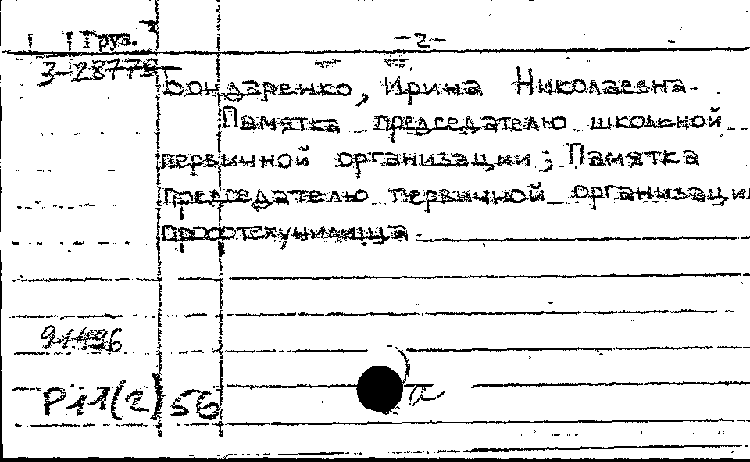 Груз. -2-
3-28778
Бондаренко, Ирина Николаевна.
Памятка председателю школьной
первичной организации; Памятка
председателю первичной организации
профтехучилища.
91496
Р11(2)56
а